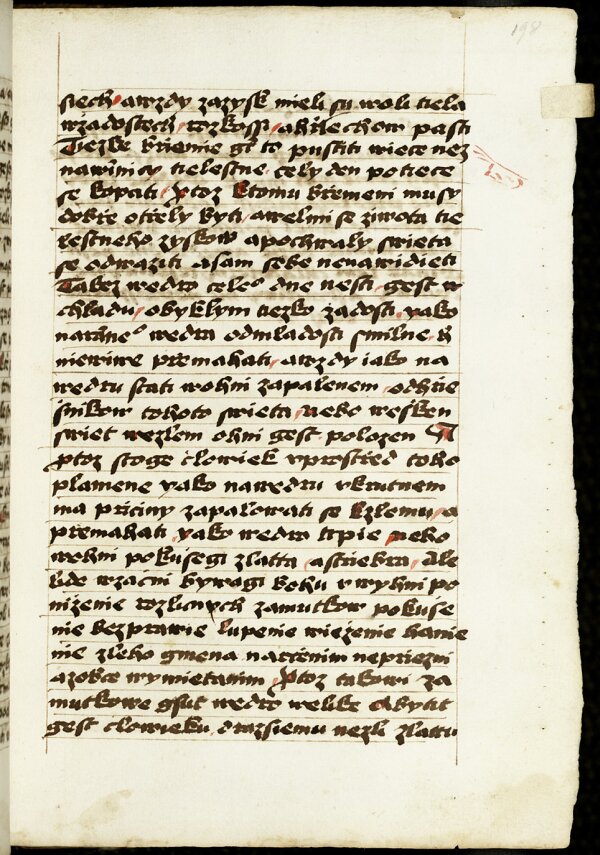 198
siech awzdy zazysk mieli su woli tiela
wzadostech rozkossi ahrziechow pasti
Tiezke brziemie gt to pustiti wiece nez
nawinici tielestne cely den potiece
se kopati ptoz ktomu brzemeni musy
dobrze otrzely byti awelmi se ziwota tie
lestneho zyskow apochwaly swieta
se odwaziti asam sebe nenawidieti
Takez wedro celeo dne nesti gest w
chladu obyklym tiezko zadosti yako
wedra odmladosti smilne
niewiwe przemahati awzdy iako na
wedru stati wohni zapalenem odhrzie
snikow tohoto swieta neho wessken
swiet wezlem ohni gest polozen A
ptoz stoge clowiek vprostrzied toho
plamene yako nawedru vkrutnem
ma prziciny zapalowati se kzlemu a
przemahati yako wedro trpie neho
wohni pokusegi zlatta astriebra Ale
lide wzacni bywagi bohu vwyhni po
nizenie rozlicnych zamutkow pokuse
nie bezprawie lupenie wiezenie hanie
nie zleho gmena narcenim neprziezni
azobce wymietanim ptoz takowi za
mutkowe gsut wedro welike Abytit
gest clowieku drazsiemu nezli zlatu